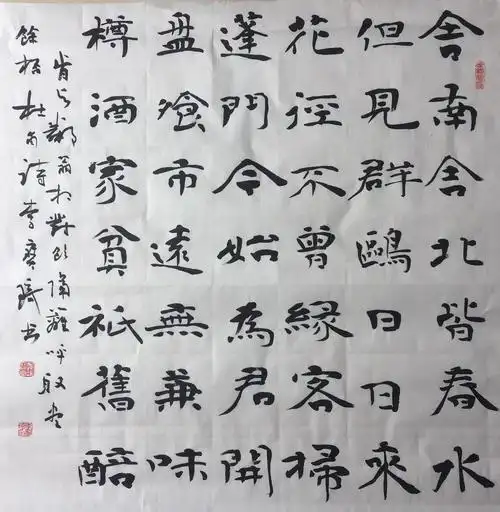 舍南舍北皆春水
但見群鷗日日來
花徑不曾緣客掃
蓬門今始為君開
盤飧市遠無兼味
樽酒家貧衹舊醅
肯與鄰翁相對飲隔籬呼取盡
餘杯 杜甫詩 李 書